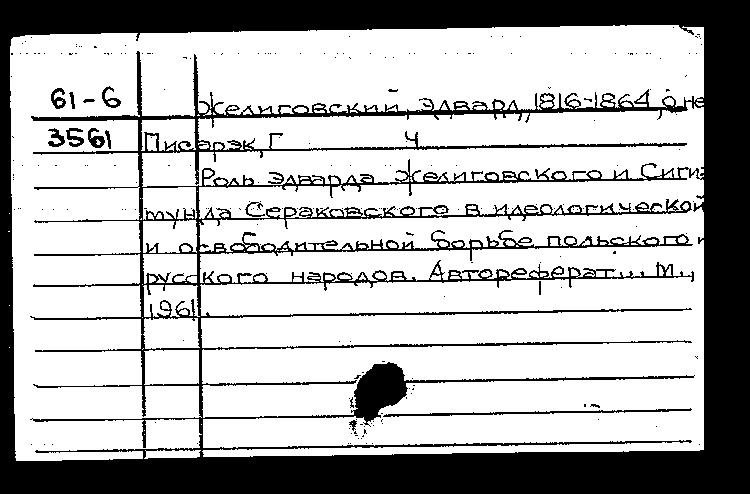 61-6 Желиговский, Эдвард, 1816-1864, о не
3561 Писарэк, Г Ч
Роль Эдварда Желиговского и Сигиз
мунда Сераковского в идеологической
и освободительной борьбе польского и
русского народов. Автореферат... М.,
1961.